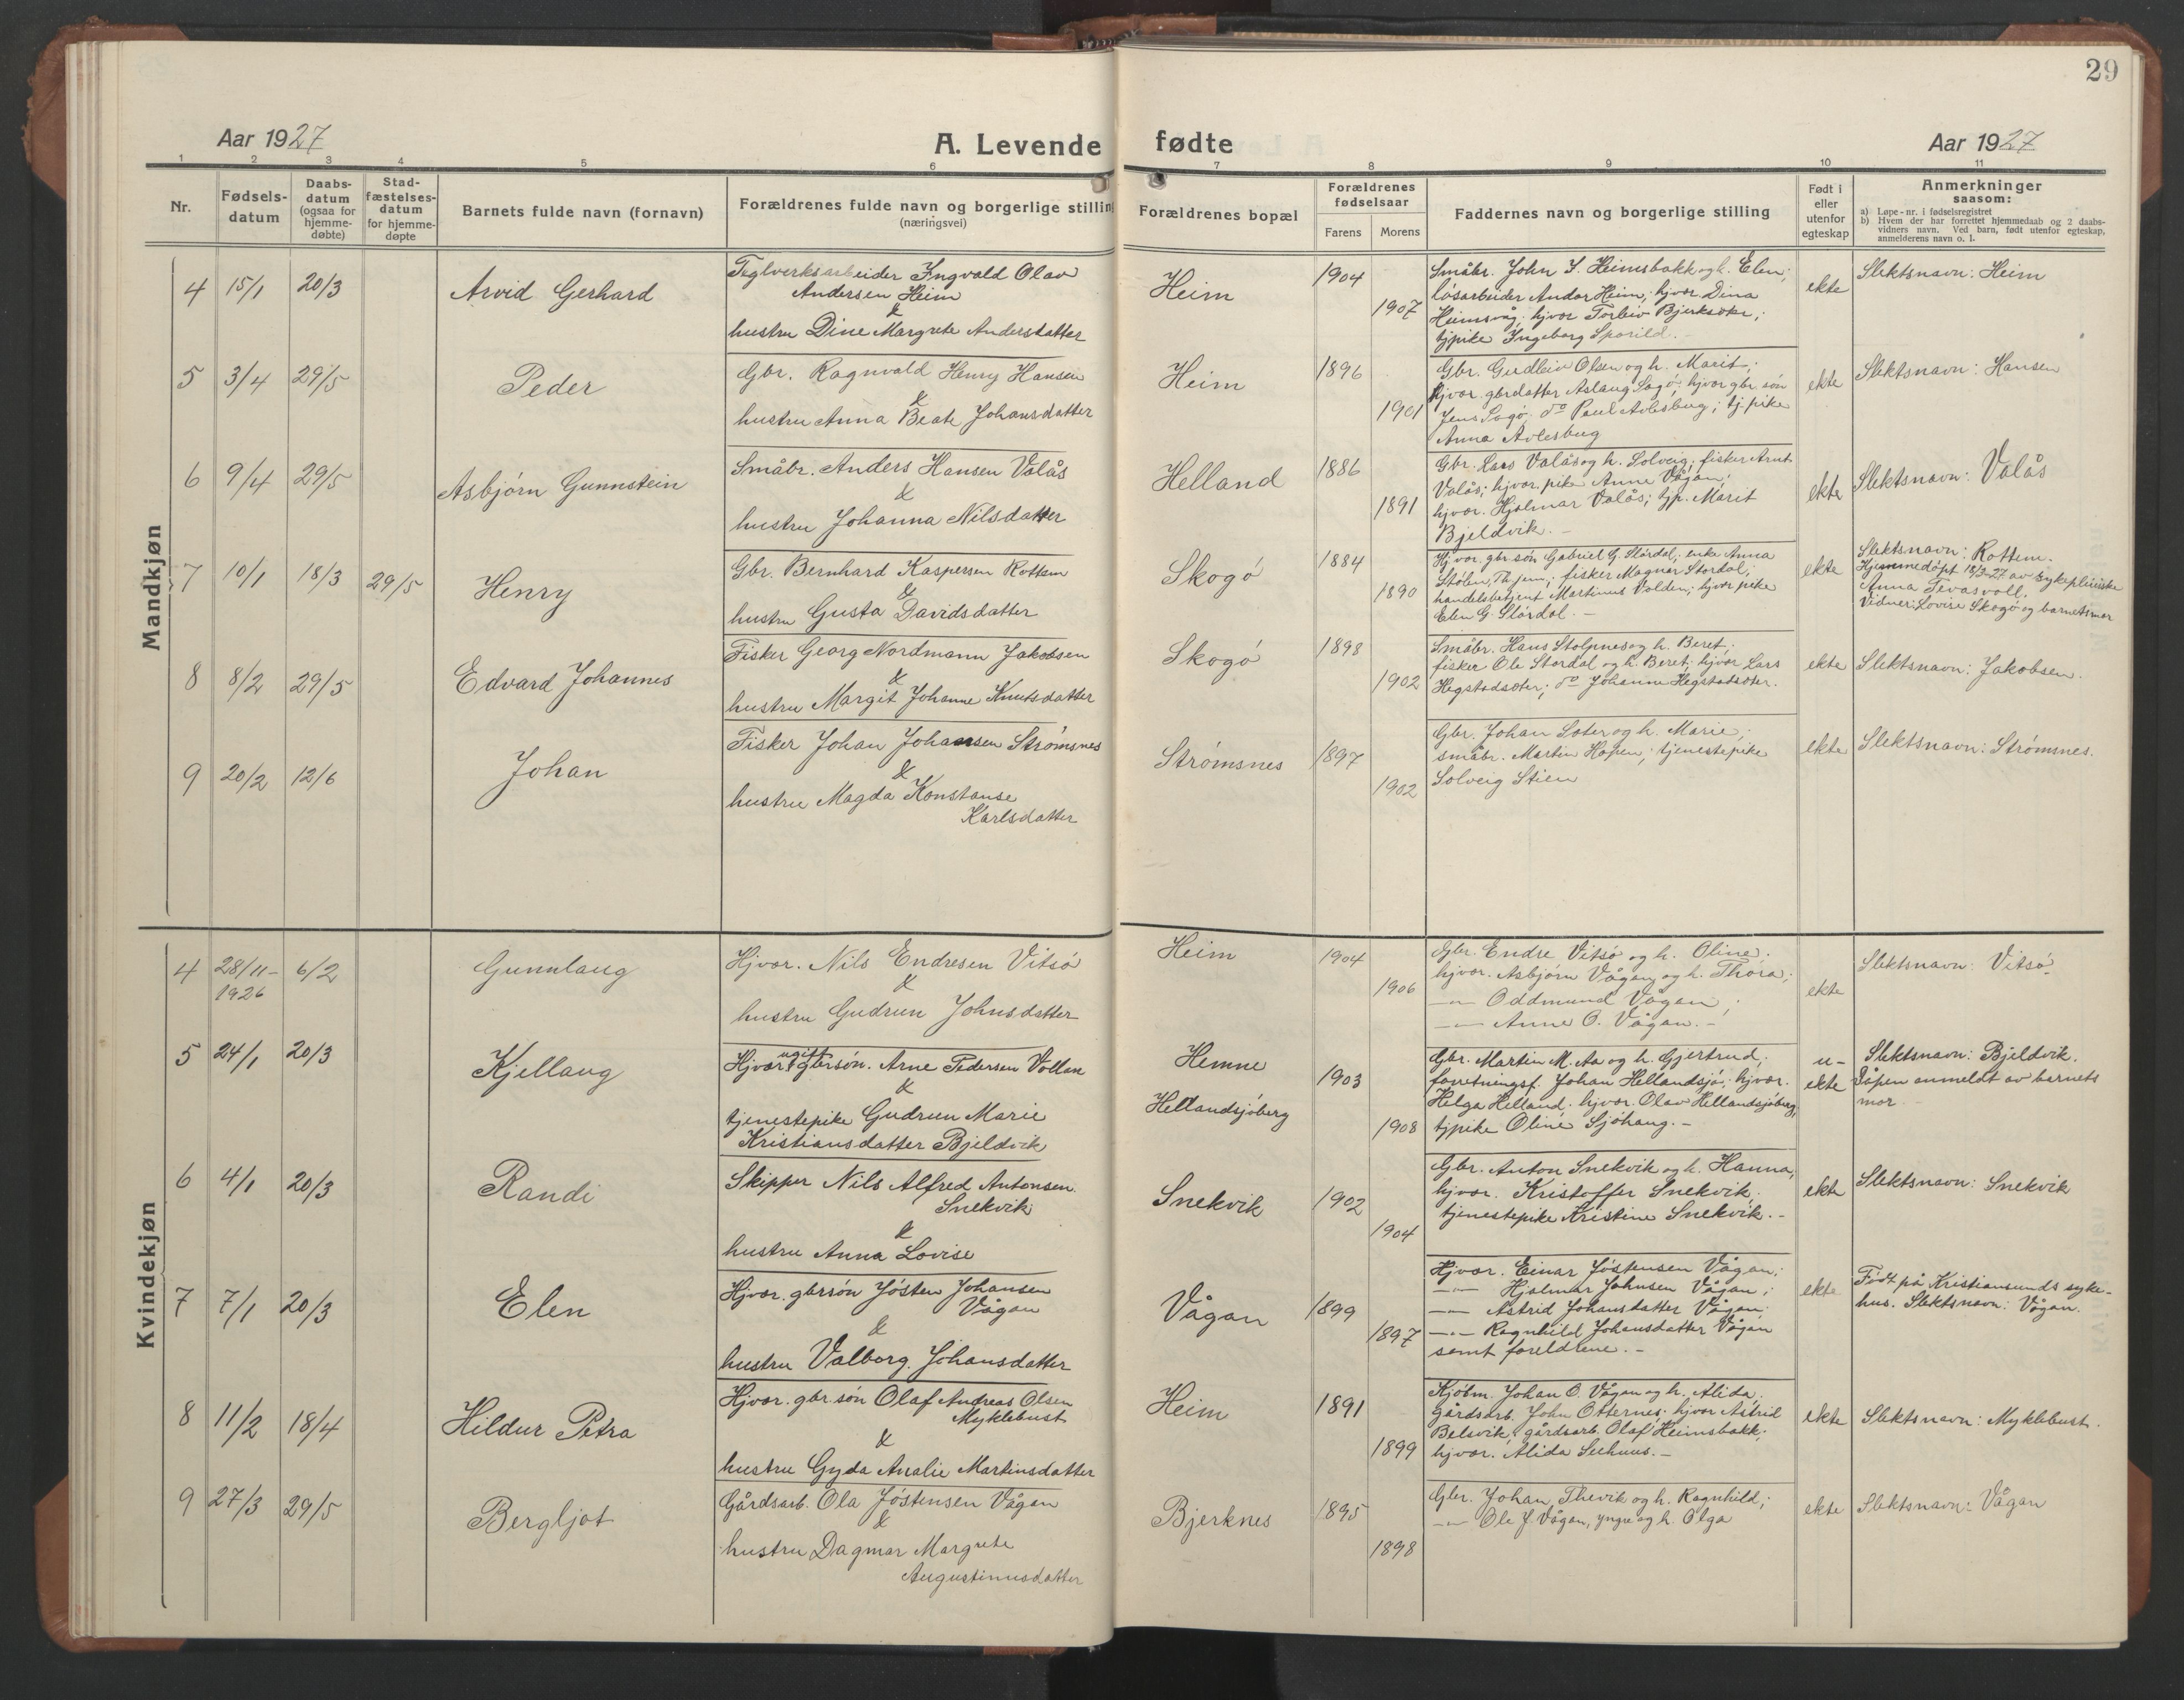 29
Aar 1927
A. Levende fødte
Aar 1927
1 2 3 4 5 6 7 8 9 10 11
Nr.
Fødsels-
datum
Daabs-
datum
(ogsaa for
hjemme-
døbte)
Stad-
fæstelses-
datum
for hjemme-
døpte
Barnets fulde navn (fornavn)
Forældrenes fulde navn og borgerlige stilling
(næringsvei)
Forældrenes bopæl
Forældrenes
fødselsaar
Farens Morens
Faddernes navn og borgerlige stilling
Født i
eller
utenfor
egteskap
Anmerkninger
saasom:
a) Løpe-nr. i fødselsregistret
b) Hvem der har forrettet hjemmedaab og 2 daabs-
vidners navn. Ved barn, født utenfor egteskap,
anmelderens navn o. l.
Mandkjøn
4 15/1 20/3 Arvid Gerhard
Teglverksarbeider Ingvald Olav
Andersen Heim
&
hustru Dine Margrete Andersdatter
Heim 1904 1907
Småbr. John I. Heimsbakk og h. Elen;
løsarbeider Andor Heim; hjvor. Dina
Heimsvåg; hjvor Torleiv Bjerksæter;
tjpike Ingeborg Sporild. -
ekte
Slektsnavn: Heim
5 3/4 29/5 Peder
Gbr. Ragnvald Henry Hansen
&
hustru Anna Beate Johansdatter
Heim 1896 1901
Gbr. Gudleiv Olsen og h. Marit;
hjvor. gbrdatter Aslaug Sagø; hjvor gbr søn
Jens Sagø; do Paul Avlesbug; tj.pike
Anna Avlesbug
ekte
Slektsnavn: Hansen
6 9/4 29/5 Asbjørn Gunnstein
Småbr. Anders Hansen Valås
&
hustru Johanna Nilsdatter
Helland 1886 1891
Gbr. Lars Valås og h. Solveig; fisker Arnt
Valås; hjvor. pike Anne Vågan;
hjvor. Hjalmar Valås; tjp. Marit
Bjeldvik. -
ekte
Slektsnavn: Valås
7 10/1 18/3 29/5 Henry
Gbr. Bernhard Kaspersen Rottem
&
hustru Gusta Davidsdatter
Skogø 1884 1890
Hjvor. gbr søn Gabriel G. Stordal; enke Anna
Stølen, Th.jem; fisker Magnar Stordal;
handelsbetjent Martinus Volden; hjvor pike
Elen G. Stordal. -
ekte
Slektsnavn: Rottem.
Hjemmedøpt 18/3-27 av sykepleierske
Anna Tevasvoll.
Vidner: Lovise Skogø og barnets mor
8 8/2 29/5 Edvard Johannes
Fisker Georg Nordmann Jakobsen
&
hustru Margit Johanne Knutsdatter
Skogø 1898 1902
Småbr. Hans Stolpnes og h. Beret;
fisker Ole Stordal og h. Beret; hjvor Lars
Hegstadsæter; do Johanne Hegstadsæter.
ekte
Slektsnavn: Jakobsen.
9 20/2 12/6 Johan
Fisker Johan Johansen Strømsnes
&
hustru Magda Konstanse
Karlsdatter
Strømsnes 1897 1902
Gbr. Johan Soter og h. Marie;
småbr. Martin Hopen; tjenestepike
Solveig Stien
ekte
Slektsnavn: Strømsnes.
Kvindekjøn
4 28/11- 1926 6/2 Gunnlaug
Hjvor. Nils Endresen Vitsø
&
hustru Gudrun Johnsdatter
Heim 1904 1906
Gbr. Endre Vitsø og h. Oline;
hjvor. Asbjørn Vågan og h. Thora;
-"- Oddmund Vågan;
-"- Anne O. Vågan. -
ekte
Slektsnavn: Vitsø
5 24/1 20/3 Kjellaug
Hjvor ugift gbrsøn. Arne Pedersen Vollan
&
tjenestepike Gudrun Marie
Kristiansdatter Bjeldvik
Hemne
Hellandsjøberg
1903 1908
Gbr. Martin M. Aa og h. Gjertrud;
forretningsf. Johan Hellandsjø; hjvor.
Helga Helland; hjvor. Olav Hellandsjøberg;
tjpike Oline Sjøhaug. -
u-
ekte
Slektsnavn: Bjeldvik.
Dåpen anmeldt av barnets
mor. -
6 4/1 20/3 Randi
Skipper Nils Alfred Antonsen
Snekvik
&
hustru Anna Lovise
Snekvik 1902 1904
Gbr. Anton Snekvik og h. Hanna;
hjvor. Kristoffer Snekvik;
tjenestepike Kristine Snekvik. -
ekte
Slektsnavn: Snekvik
7 7/1 20/3 Elen
Hjvor. gbrsøn Jøsten Johansen
Vågan
&
hustru Valborg Johansdatter
Vågan 1899 1897
Hjvor. Einar Jøstensen Vågan;
-"- Hjalmar Johnsen Vågan;
-"- Astrid Johansdatter Vågan;
-"- Ragnhild Johansdatter Vågan
samt foreldrene. -
ekte
Født på Kristiansunds syke-
hus. Slektsnavn: Vågan.
8 11/2 18/4 Hildur Petra
Hjvor. gbr søn Olaf Andreas Olsen
Myklebust
&
hustru Gyda Analie Martinsdatter
Heim 1891 1899
Kjøbm. Johan O. Vågan og h. Alida;
gårdsarb. John Otternes; hjvor Astrid
Belsvik; gårdsarb. Olaf Heimsbakk;
hjvor. Alida Seehuus. -
ekte
Slektsnavn: Myklebust.
9 27/3 29/5 Bergljot
Gårdsarb. Ola Jøstensen Vågan
&
hustru Dagmar Margrete
Augustinusdatter
Bjerknes 1895 1898
Gbr. Johan Thevik og h. Ragnhild;
-"- Ole J. Vågan, yngre og h. Olga
ekte
Slektsnavn: Vågan